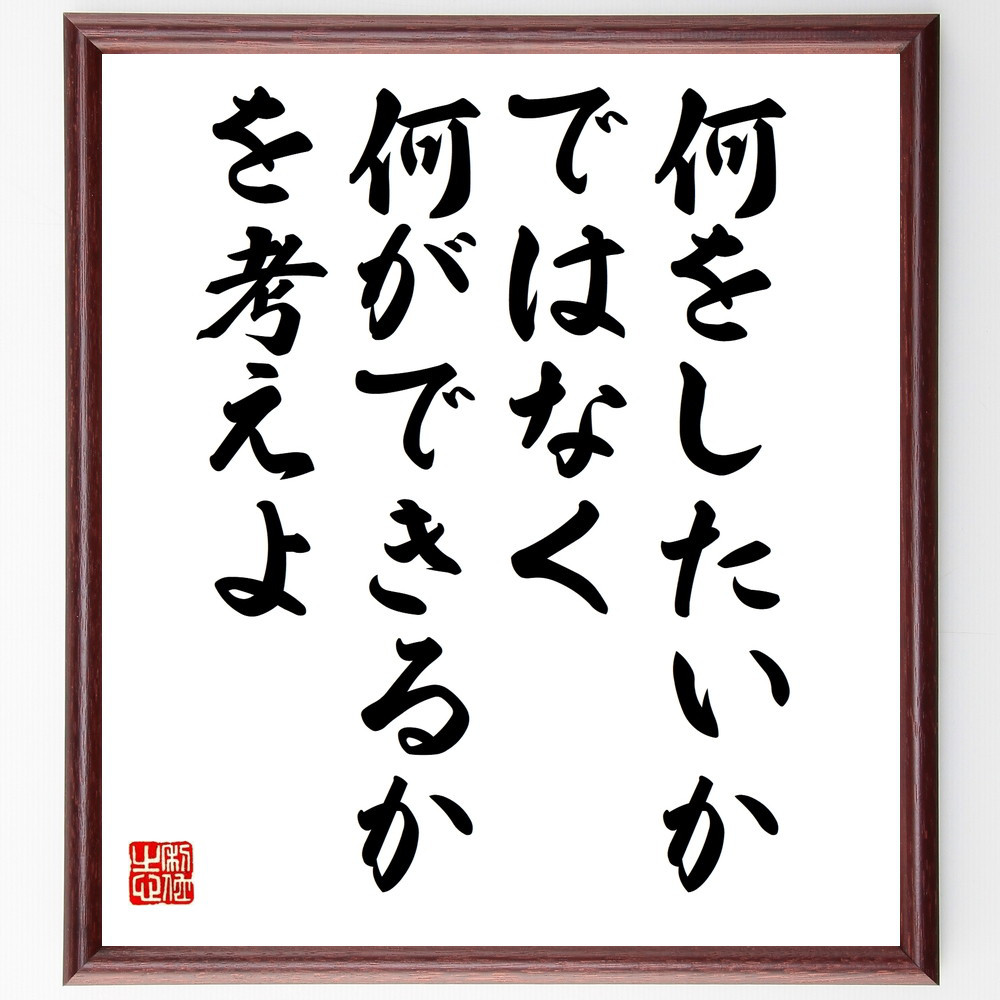 何をしたいか
ではなく
何ができるか
を考えよ